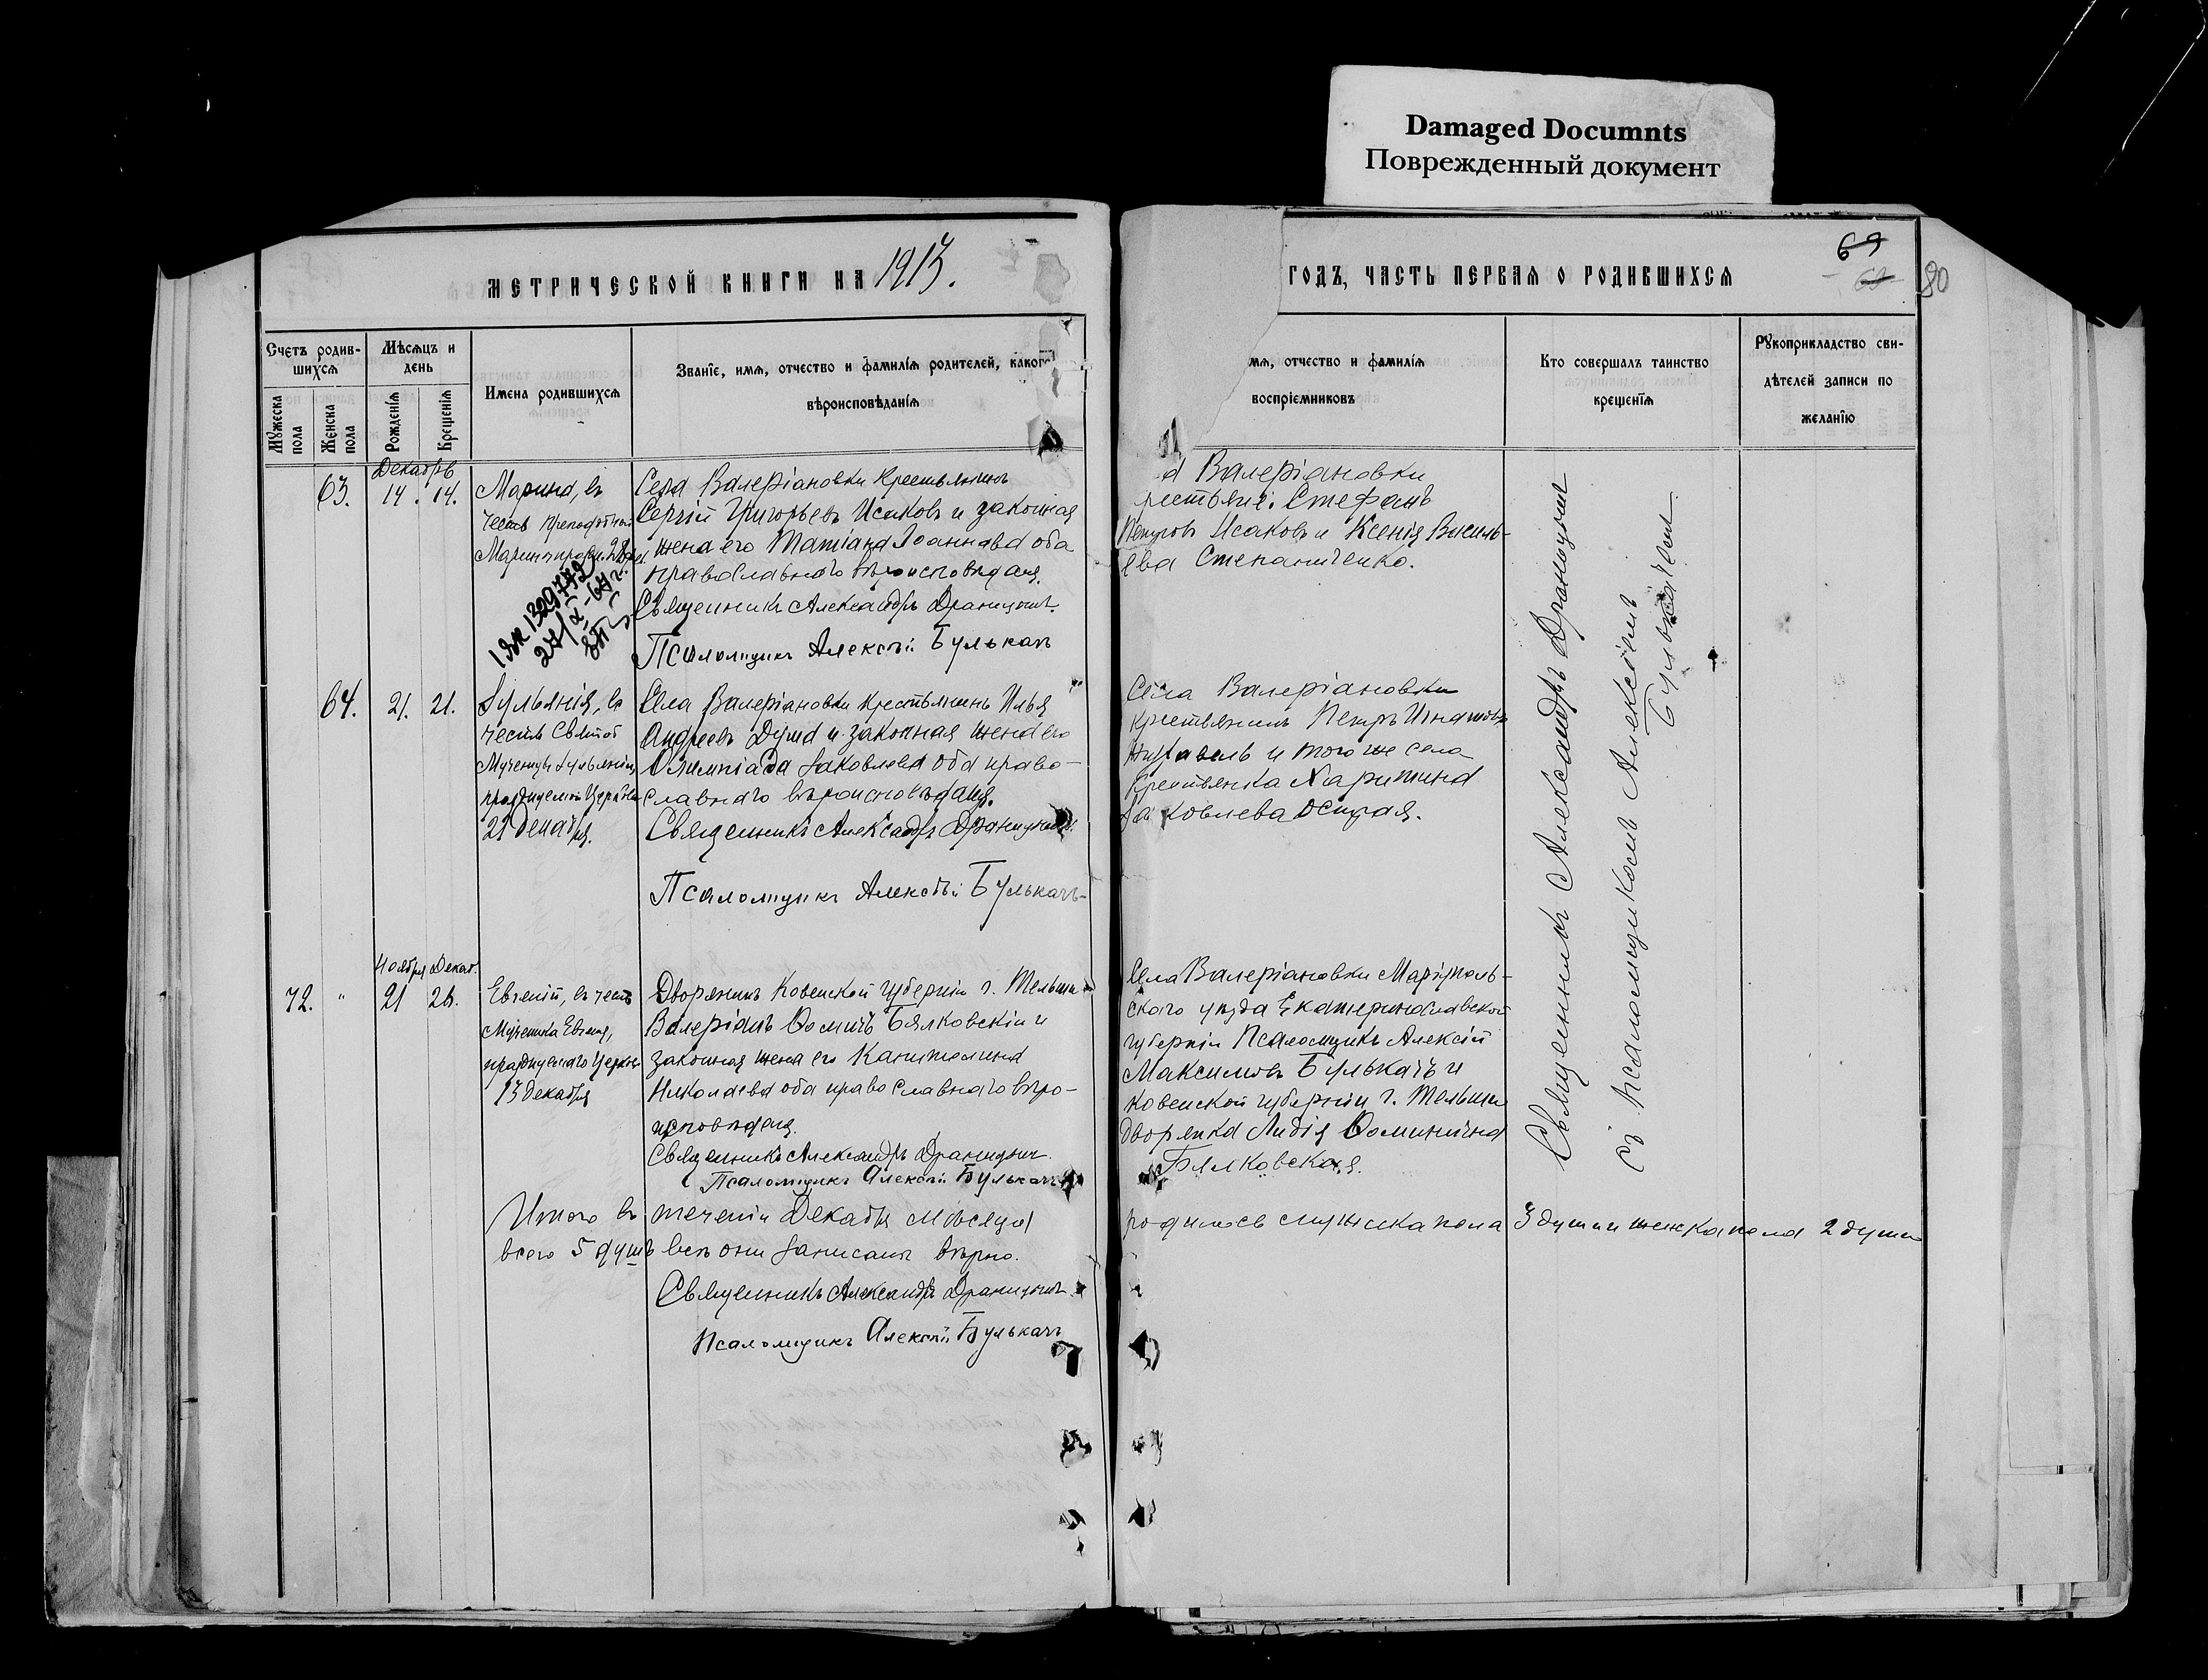 Damaged Documnts
Поврежденный документ
МЕТРИЧЕСКОЙ КНИГИ НА 1913.
Счетъ родив-
шихся
Мѣсяцъ и
день
Мужеска
пола
Женска
пола
Рожденія
Крещенія
Имена родившихся
Званіе, имя, отчество и фамилія родителей, какого
вѣроисповѣданія
Декабрь
63. 14. 14.
Марина, въ
честь преподобной
Марины празд. 28
1 ЯК 1329772
Села Валеріановки крестьянинъ
Сергій Григорьевъ Исаковъ и законная
жена его Татіана Іоаннова оба
православнаго вѣроисповѣданія.
Священникъ Александръ Драницынъ.
Псаломщикъ Алексѣй Булькачъ
64. 21. 21.
Іульянія, въ
честь святой
Мученицы Іульяніи,
празднуемой Церковью
21 декабря.
Села Валеріановки крестьянинъ Илья
Андреевъ Дума и законная жена его
Олимпіада Яковлева оба право-
славнаго вѣроисповѣданія.
Священникъ Александръ Драницынъ.
Псаломщикъ Алексѣй Булькачъ
Ноября Декаб.
72. " 21 26.
Евгеній, въ честь
Мученика Евгенія,
празднуемаго Церковью
13 декабря
Дворянинъ Ковенской губерніи г. Тельши
Валеріанъ Бялковскій и
законная жена его Капитолина
Николаева оба православнаго вѣро-
исповѣданія.
Священникъ Александръ Драницынъ.
Псаломщикъ Алексѣй Булькачъ
Итого въ теченіи Декабря мѣсяца
всего 5 душъ всѣ они записаны вѣрно.
Священникъ Александръ Драницынъ
Псаломщикъ Алексѣй Булькачъ
69
69
80
ГОДЪ, ЧАСТЬ ПЕРВАЯ О РОДИВШИХСЯ
мя, отчество и фамилія
воспріемниковъ
Кто совершалъ таинство
крещенія
Рукоприкладство сви-
дѣтелей записи по
желанію
а Валеріановки
рестьяне: Стефанъ
Петровъ Исаковъ и Ксенія Василь-
ева Степаниченко.
Села Валеріановки
крестьянинъ Петръ Игнатовъ
и того же села
крестьянка Харитина
Яковлева
Села Валеріановки Маріуполь-
скаго уѣзда Екатеринославской
губерніи Псаломщикъ Алексій
Максимовъ Булькачъ и
Ковенской губерніи г. Тельши
дворянка Лидія
Бялковская.
родилось мужска пола 3 души и женска пола 2 души
Священникъ Александръ Драницынъ
съ псаломщикомъ Алексіемъ
Булькачемъ